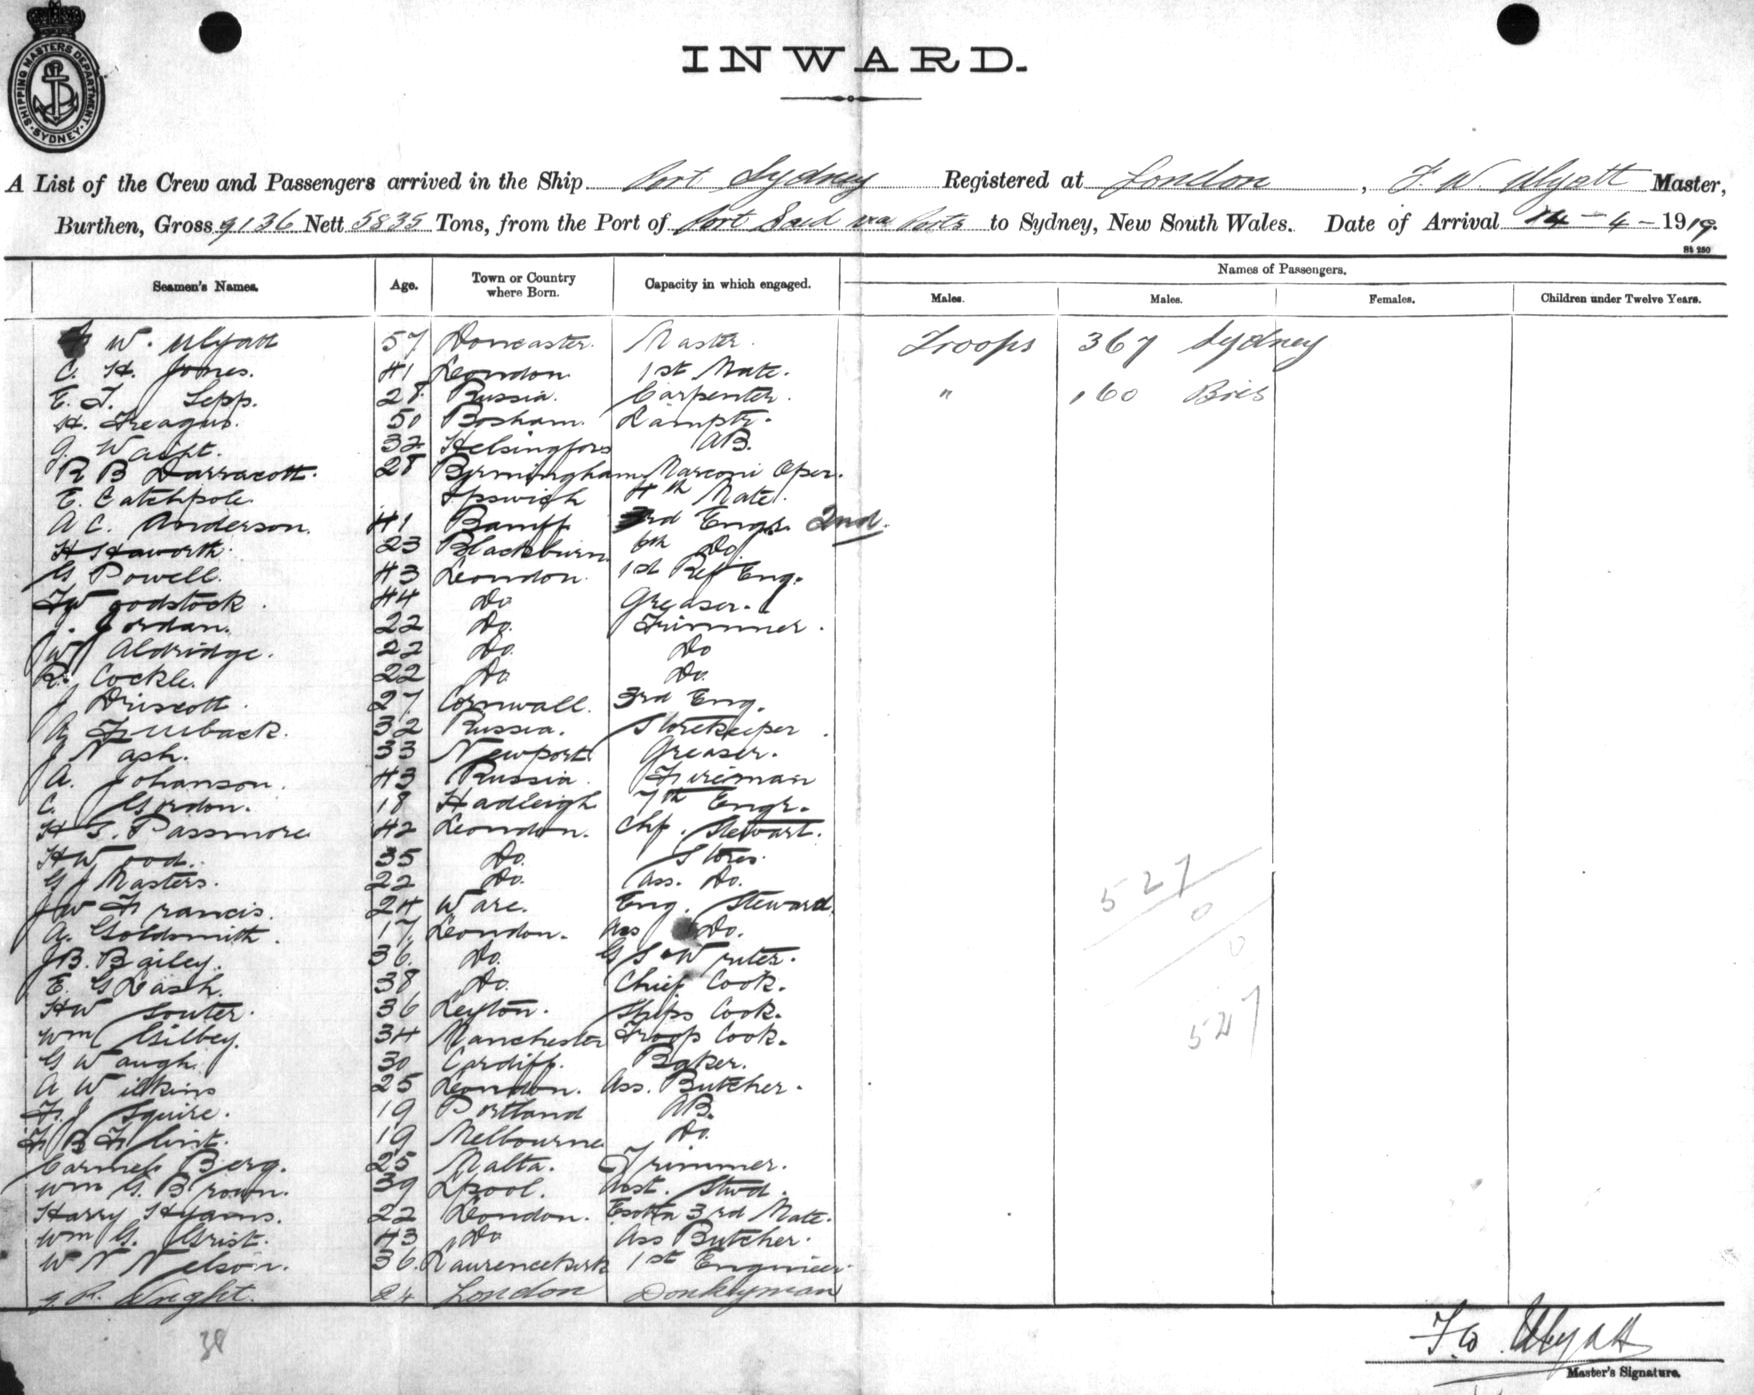 SHIPPING MASTERS DEPARTMENT
SYDNEY
INWARD.
A List of the Crew and Passengers arrived in the Ship Port Sydney Registered at London, F. W. Ulyatt Master,
Burthen, Gross 9136 Nett 5835 Tons, from the Port of Port Said via Ports to Sydney, New South Wales. Date of Arrival 14-4-1919.
St 250
Seamen's Names. Age. Town or Country where Born. Capacity in which engaged. Names of Passengers.
Males. Males. Females. Children under Twelve Years.
F W. Ulyatt 57 Doncaster. Master. Troops 367 Sydney
C. H. Jones. 41 London 1st Mate.
E. J. Sepp. 28. Russia. Carpenter. " 160 Bris
H. Treagus. 50 Bosham. Lamptr.
32 Helsingfors AB.
R B Darracott. 28 Birmingham Marconi Oper.
E. Catchpole. Ipswich 4th Mate.
A C. Anderson. 41 Banff 3rd Engr. 2nd.
H Haworth. 23 Blackburn 6th Do.
G Powell. 43 London. 1st Ref Eng.
F Woodstock. 44 Do Greaser.
J. Jordan. 22 Do. Trimmer.
W Aldridge. 22 Do. Do
R. Cockle. 22 Do Do.
J Driscott. 27 Cornwall. 3rd Eng.
A 32 Russia. Storekeeper.
J Nash. 33 Newport Greaser.
A. Johanson. 43 Russia. Fireman
C. Gordon. 18 Hadleigh 7th Engr.
H G. Passmore 42 London. Chf. Stewart.
H Wood. 35 Do. Stores.
G J Masters. 22 Do. Ass. Do.
J W Francis. 24 Ware. Eng. Steward.
A. Goldsmith. 17 London. Ass Do.
J B. Bailey. 36. Do. G S. Writer.
E. G Dash. 38 Do. Chief Cook.
H W Souter. 36 Leyton. Ships Cook.
Wm Gilbey. 34 Manchester Troop Cook.
G Waugh. 30 Cardiff. Baker.
A Wilkins 25 London. Ass. Butcher.
F. J Squire. 19 Portland AB.
F B Flint. 19 Melbourne Do.
Carmelo Berg. 25 Malta. Trimmer.
Wm G. Brown. 39 Lpool. Asst. Stwd.
Harry Hyams. 22 London. Extra 3rd Mate.
Wm G. Grist. 43 Do Ass Butcher.
W N Nelson. 36. Laurencekirk 1st Engineer.
Wright. 24 London Donkeyman
527
0
0
527
38
F. W. Ulyatt
Master's Signature.